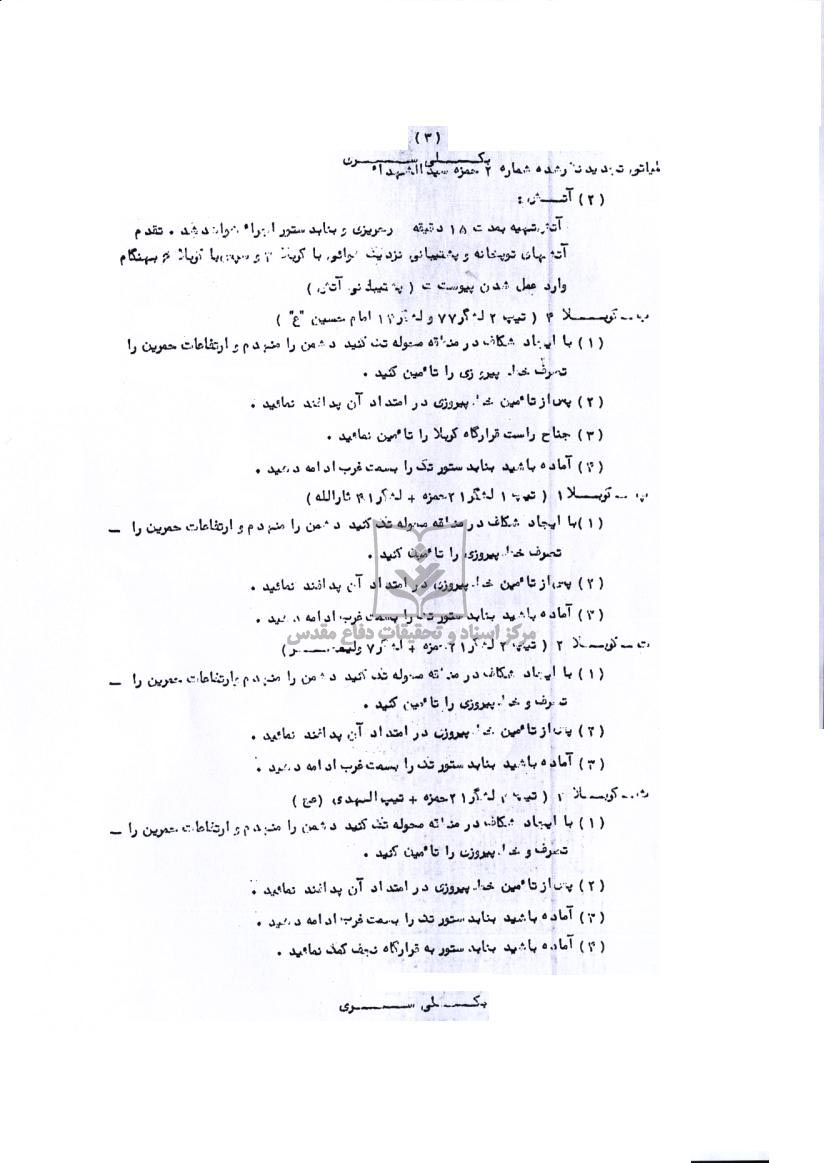 (۳)
بکـــلی ســـــری
طرح عملیاتی تجدید نظر شده شماره ۲ حمزه سیدالشهداء
(۲) آتـــش :
آتش تهیه بمدت ۱۸ دقیقه و بنابدستور اجراء خواهد شد . تقدم
آتشهای توپخانه و پشتیبانی نزدیک هوائی با کربلا ۳ و سپس با کربلا بهنگام
وارد عمل شدن پیوست ت ( پشتیبانی آتش )
ب ــ کربـــلا ۴ ( تیپ ۲ لشگر ۷۷ و لشگر ۱۴ امام حسین "ع" )
(۱) با ایجاد شکاف در منطقه محوله تک کنید دشمن را منهدم و ارتفاعات حمرین را
تصرف خط پیروزی را تأمین کنید .
(۲) پس از تأمین خط پیروزی در امتداد آن پدافند نمائید .
(۳) جناح راست قرارگاه کربلا را تأمین نمائید .
(۴) آماده باشید بنابدستور تک را بسمت غرب ادامه دهید .
پ ــ کربـــلا ۱ ( تیپ ۱ لشگر ۲۱ حمزه + لشگر ۴۱ ثارالله )
(۱) با ایجاد شکاف در منطقه محوله تک کنید دشمن را منهدم و ارتفاعات حمرین را ــ
تصرف خط پیروزی را تأمین کنید .
(۲) پس از تأمین خط پیروزی در امتداد آن پدافند نمائید .
(۳) آماده باشید بنابدستور تک را بسمت غرب ادامه دهید .
مرکز اسناد و تحقیقات دفاع مقدس
ت ــ کربـــلا ۲ ( تیپ ۲ لشگر ۲۱ حمزه + لشگر ۷ ولیعصـــر )
(۱) با ایجاد شکاف در منطقه محوله تک کنید دشمن را منهدم وارتفاعات حمرین را ــ
تصرف و خط پیروزی را تأمین کنید .
(۲) پس از تأمین خط پیروزی در امتداد آن پدافند نمائید .
(۳) آماده باشید بنابدستور تک را بسمت غرب ادامه دهید .
ث ــ کربـــلا ۳ ( تیپ لشگر ۲۱ حمزه + تیپ المهدی (عج )
(۱) با ایجاد شکاف در منطقه محوله تک کنید دشمن را منهدم و ارتفاعات حمرین را ــ
تصرف و خط پیروزی را تأمین کنید .
(۲) پس از تأمین خط پیروزی در امتداد آن پدافند نمائید .
(۳) آماده باشید بنابدستور تک را بسمت غرب ادامه دهید .
(۴) آماده باشید بنابدستور به قرارگاه نجف کمک نمائید .
بکـــلی ســـــری